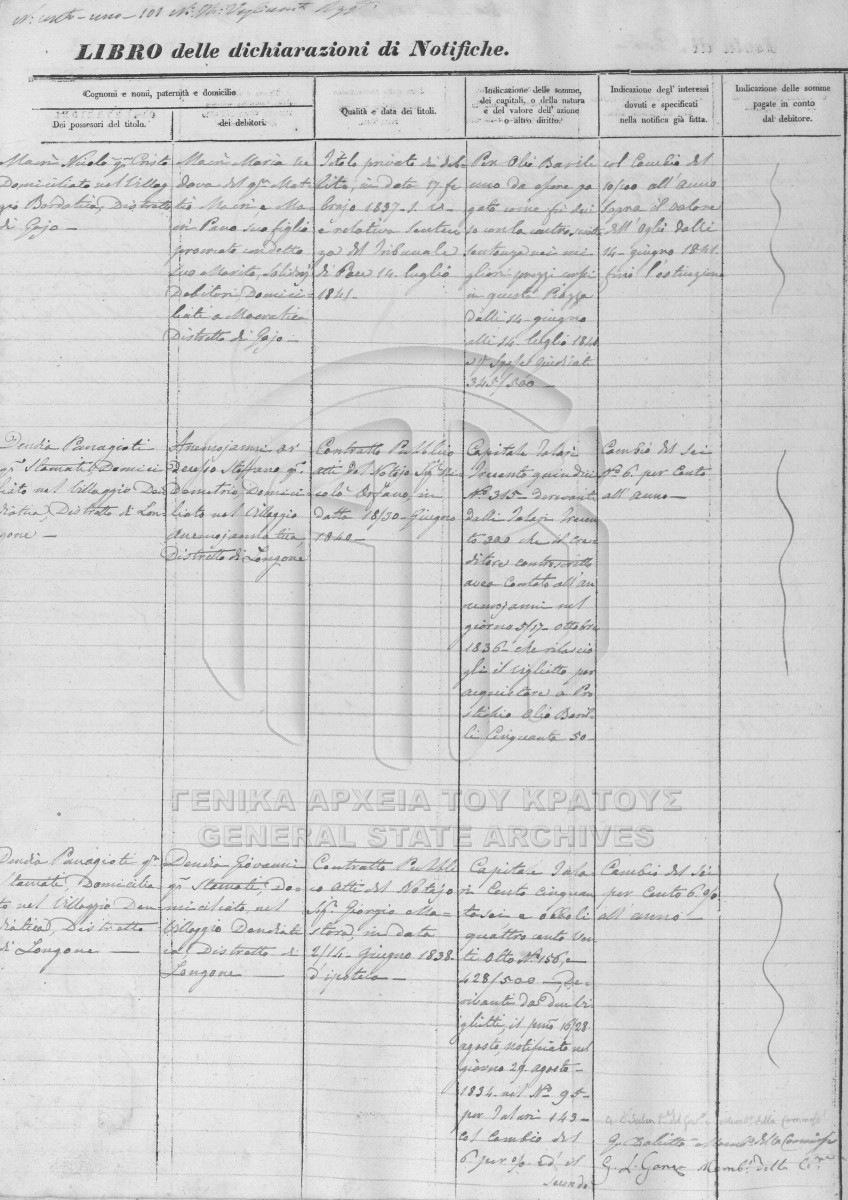 LIBRO delle dichiarazioni di Notifiche.
Cognomi e nomi, paternità e domicilio
Dei possessori del titolo.
dei debitori.
Qualità e data dei titoli.
Indicazione delle somme,
dei capitali, o della natura
e del valore dell' azione
o altro diritto.
Indicazione degl' interessi
dovuti e specificati
nella notifica già fatta.
Indicazione delle somme
pagate in conto
dal debitore.
Macrì Nicolò
Domiciliato nel Villag-
Distretto
Macrì Maria Ve
dova del
suo figlio
suo Marito,
Debitori, Domici-
liati a
Distretto di
Titolo privato di deb-
ito, in data 17 fe
brajo 1837.
e relativa senten
za del Tribunale
di Pace 14. luglio
1841.
Per Olio Barile
uno da
sentenza nei mi
gliori prezzi corsi
in questa Piazza
dalli 14 giugno
alli 14. luglio 1841
345/500
col Cambio del
10/100 all'anno
sopra il valore
dell'Oglio dalli
14 giugno 1841.
fino l'estinzione
Dendià Panagioti
Stamati Domici
liato nel Villaggio Den
diatica, Distretto di Lon
gone
Anemojanni
Steffano
Demetrio, Domici
liato nel Villaggio
Anemojannatica,
Distretto di Longone
Contratto Pubblico
atti del Notajo
in
data 18/30 Giugno
1840
Capitale Talari
Trecento quindici
No 315
dalli Talari Trece
nto 300 che il cre
ditore controscritto
avea contato all'an
nemojanni nel
giorno 5/17 Ottobre
1836 che rilascio
gli il viglietto per
acquistare a Pro
stichio Olio Baril
li Cinquanta 50
Cambio del sei
No 6. per Cento
all'anno
Dendià Panagioti
Stamati, Domicilia
to nel Villaggio Den
diatica, Distretto
di Longone
Dendià Giovanni
Stamati, Do
miciliato nel
Villaggio Dendiat
ica, Distretto di
Longone
Contratto Pubbli
co Atti del Notajo
Giorgio
in data
2/14 Giugno 1838
d'ipoteca
Capitale Tala
ri Cento cinquan
ta sei e oboli
quattrocento ven
ti Otto No 156, e
428/500 De
rivanti da due vi
glietti, il primo 16/28
agosto, notificato nel
giorno 29 agosto
1834 nel No 95
per Talari 143
col Cambio del
6 per % Ed il
secondo
Cambio del sei
per Cento 6 %
all'anno
ΓΕΝΙΚΑ ΑΡΧΕΙΑ ΤΟΥ ΚΡΑΤΟΥΣ
GENERAL STATE ARCHIVES